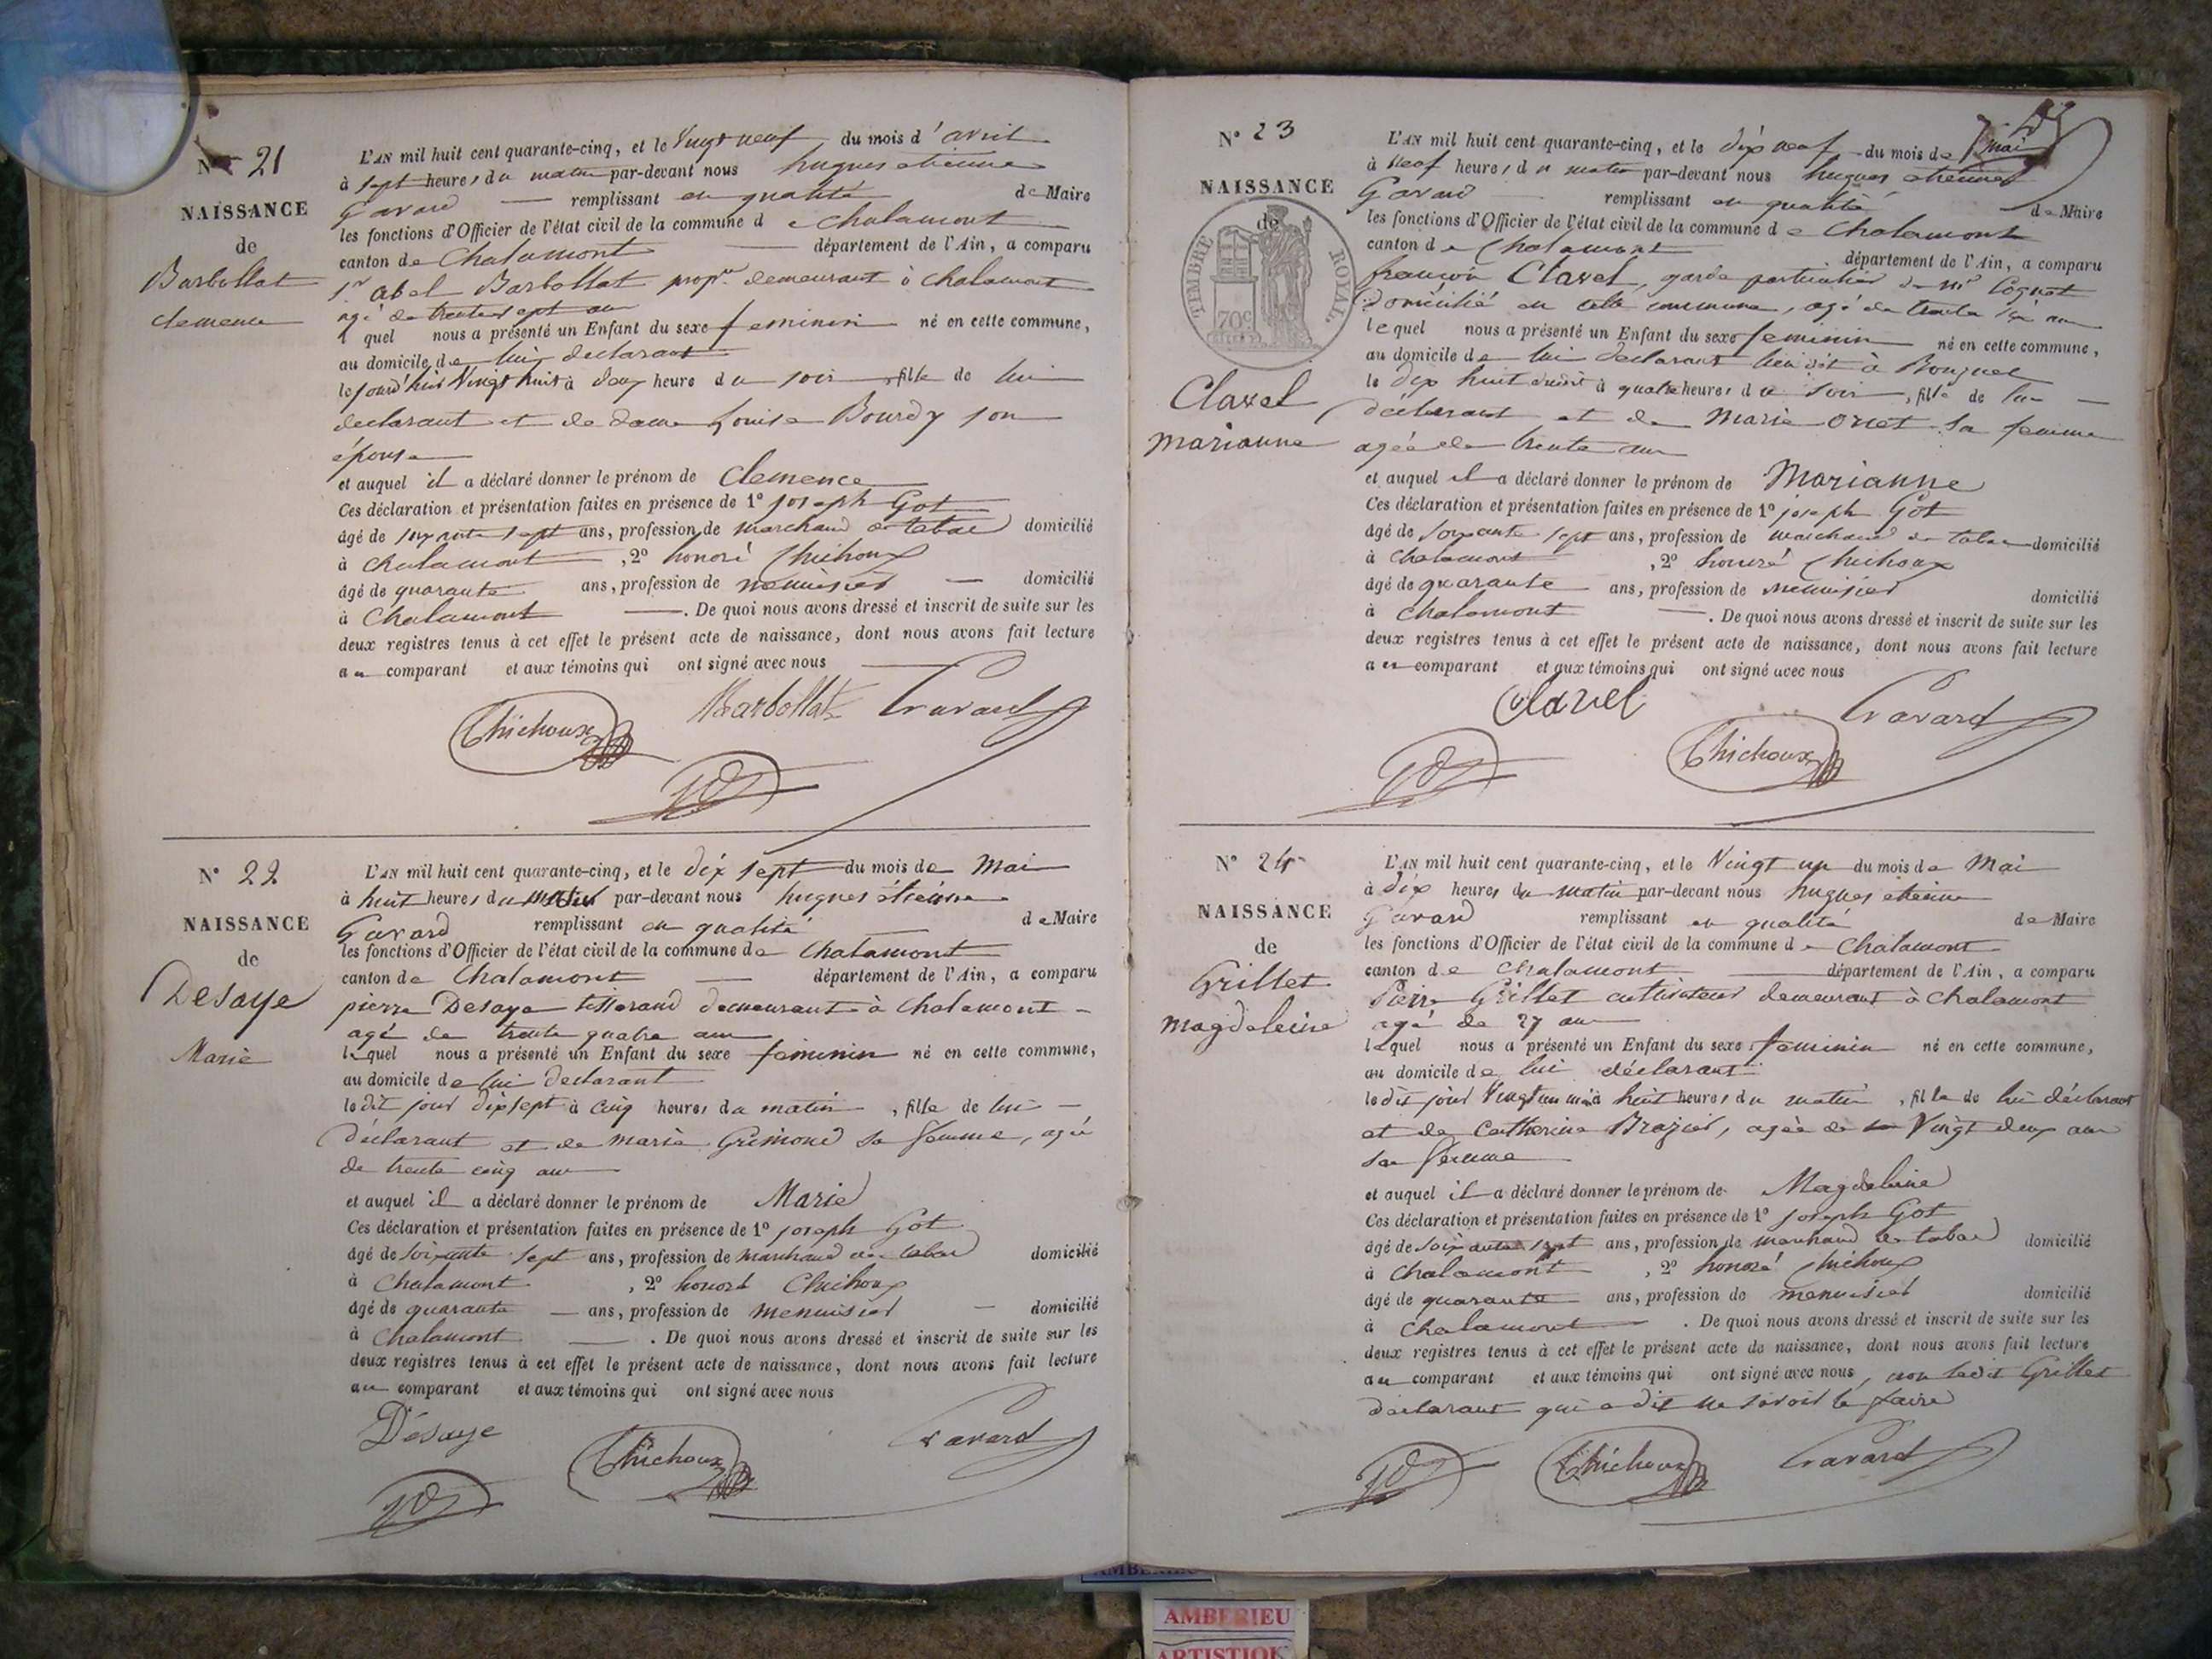 N° 21
NAISSANCE
de
Barbollat
clemence
L'AN mil huit cent quarante-cinq, et le Vingt neuf du mois d'avril
à sept heures du matin par-devant nous hugues etienne
Gavard remplissant en qualité de Maire
les fonctions d'Officier de l'état civil de la commune de chalamont
canton de Chalamont département de l'Ain, a comparu
Sr abel Barbollat propre demeurant à chalamont
agé de trente sept ans
lequel nous a présenté un Enfant du sexe feminin né en cette commune,
au domicile de lui declarant
le jourd'hui Vingt huit à deux heure du soir, fille de lui
declarant et de dame Louise Bourdy son
épouse
et auquel il a déclaré donner le prénom de Clemence
Ces déclaration et présentation faites en présence de 1° joseph Got
âgé de soixante sept ans, profession de marchand de tabac domicilié
à chalamont, 2° honoré Chichoux
âgé de quarante ans, profession de menuisier domicilié
à Chalamont. De quoi nous avons dressé et inscrit de suite sur les
deux registres tenus à cet effet le présent acte de naissance, dont nous avons fait lecture
au comparant et aux témoins qui ont signé avec nous
Barbollat Gavard
Chichoux
N° 22
NAISSANCE
de
Desaye
Marie
L'AN mil huit cent quarante-cinq, et le dix sept du mois de Mai
à huit heures du matin par-devant nous hugues étienne
Gavard remplissant en qualité de Maire
les fonctions d'Officier de l'état civil de la commune de Chalamont
canton de Chalamont département de l'Ain, a comparu
pierre Desaye tisserand demeurant à Chalamont
agé de trente quatre ans
lequel nous a présenté un Enfant du sexe feminin né en cette commune,
au domicile de lui declarant
le dit jour dix sept à cinq heures du matin, fille de lui
déclarant et de marie Grimond sa femme, agée
de trente cinq ans
et auquel il a déclaré donner le prénom de Marie
Ces déclaration et présentation faites en présence de 1° joseph Got
âgé de soixante sept ans, profession de marchand de tabac domicilié
à Chalamont, 2° honoré Chichoux
âgé de quarante ans, profession de menuisier domicilié
à Chalamont. De quoi nous avons dressé et inscrit de suite sur les
deux registres tenus à cet effet le présent acte de naissance, dont nous avons fait lecture
au comparant et aux témoins qui ont signé avec nous
Désaye Chichoux Gavard
N° 23
NAISSANCE
de
TIMBRE ROYAL.
70c
Clavel
marianne
L'AN mil huit cent quarante-cinq, et le dix neuf du mois de mai
à neuf heures du matin par-devant nous hugues etienne
Gavard remplissant en qualité de Maire
les fonctions d'Officier de l'état civil de la commune de Chalamont
canton de Chalamont département de l'Ain, a comparu
françois Clavel, garde particulier de mr Cognat
domicilié en cette commune, agé de trente six ans
lequel nous a présenté un Enfant du sexe feminin né en cette commune,
au domicile de lui declarant lieu dit à Bouquet
le dix huit dudit à quatre heures du soir, fille de lui
déclarant et de Marie Oriet sa femme
agée de trente ans
et auquel il a déclaré donner le prénom de Marianne
Ces déclaration et présentation faites en présence de 1° joseph Got
âgé de soixante sept ans, profession de marchand de tabac domicilié
à Chalamont, 2° honoré Chichoux
âgé de quarante ans, profession de menuisier domicilié
à Chalamont. De quoi nous avons dressé et inscrit de suite sur les
deux registres tenus à cet effet le présent acte de naissance, dont nous avons fait lecture
au comparant et aux témoins qui ont signé avec nous
Clavel Gavard
Chichoux
N° 24
NAISSANCE
de
Grillet
magdeleine
L'AN mil huit cent quarante-cinq, et le Vingt un du mois de Mai
à dix heures du matin par-devant nous hugues etienne
Gavard remplissant en qualité de Maire
les fonctions d'Officier de l'état civil de la commune de Chalamont
canton de Chalamont département de l'Ain, a comparu
Pierre Grillet cultivateur demeurant à Chalamont
agé de 27 ans
lequel nous a présenté un Enfant du sexe feminin né en cette commune,
au domicile de lui déclarant
le dit jour Vingt un mai à huit heures du matin, fille de lui déclarant
et de Catherine Brazier, agée de Vingt deux ans
sa femme
et auquel il a déclaré donner le prénom de Magdeleine
Ces déclaration et présentation faites en présence de 1° joseph Got
âgé de soixante sept ans, profession de marchand de tabac domicilié
à Chalamont, 2° honoré Chichoux
âgé de quarante ans, profession de menuisier domicilié
à Chalamont. De quoi nous avons dressé et inscrit de suite sur les
deux registres tenus à cet effet le présent acte de naissance, dont nous avons fait lecture
au comparant et aux témoins qui ont signé avec nous, non ledit Grillet
declarant qui a dit ne savoir le faire
Chichoux Gavard
AMBERIEU
AMBERIEU
ARTISTIQ